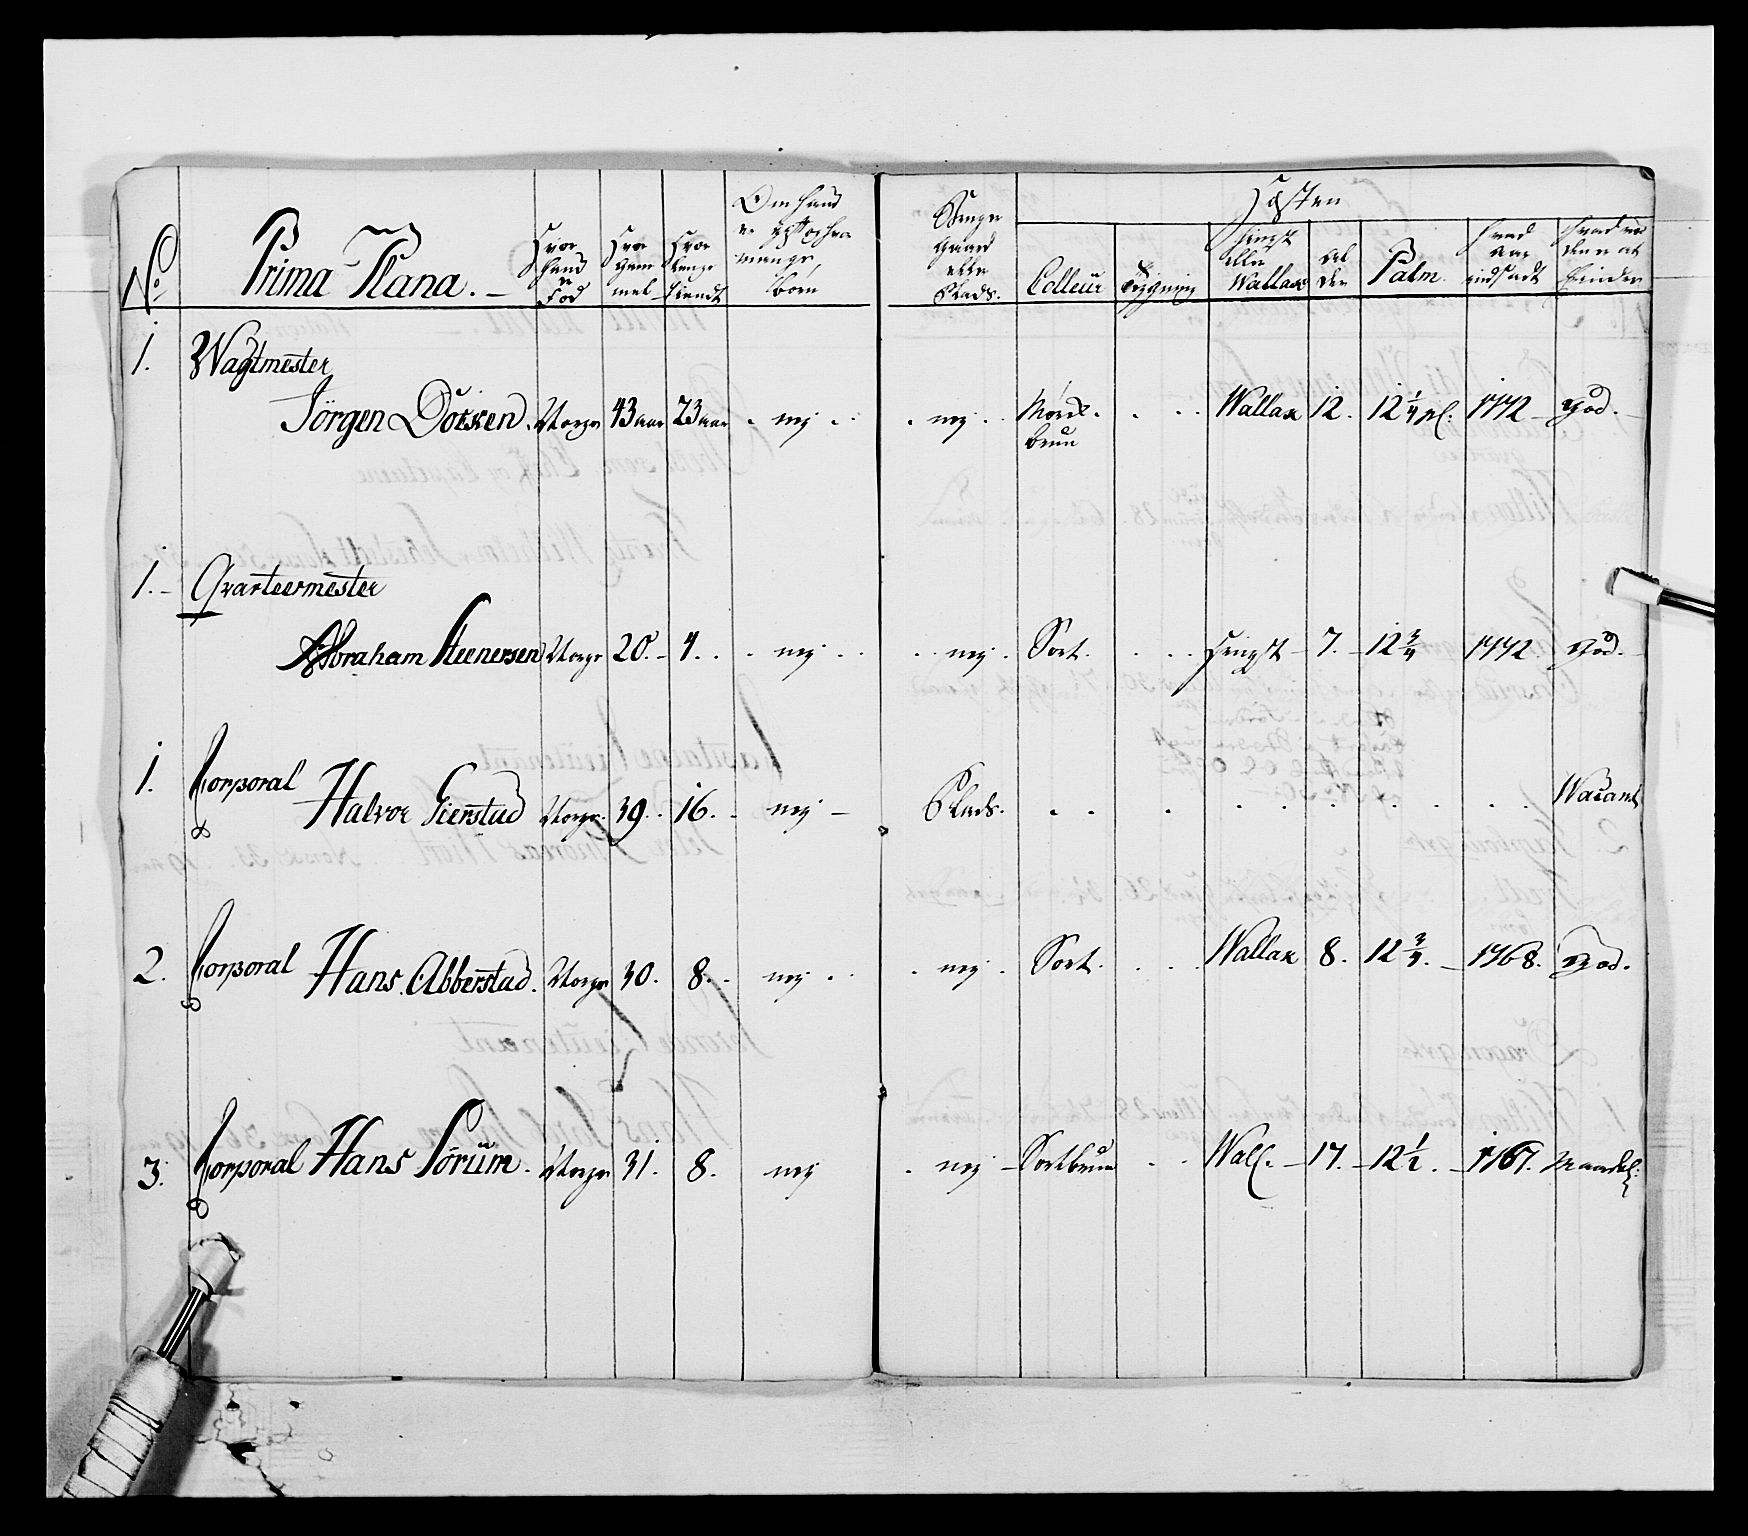 No
Prima Plana.
Hvor
hand
er
Fød
Hvor
gam
mel
Hvor
lenge
tient
Om hand
er gift og hvor
mange
børn
Gaard
eller
Plads.
Hesten
Colleur
Tegning
Hingst
eller
Wallax
Al
der
Palm.
Hvad
Aar
indsadt
1. Wagtmester
Jörgen Dorken. Norge 43 aar 23 aar nej nej Mörk-
brun
Wallax 12. 12 1/4 pl. 1772 god.
1. Qvarteermester
Abraham Steenersen Norge 20. 4. nej nej. Sort. Hingst 7. 12 3/4 1772 god.
1. Corporal
Halvor Gierstad Norge. 39. 16. nej Plads. Wacant
2. Corporal Hans Abberstad. Norge 30. 8. nej nej. Sort. Wallax 8. 12 3/4. 1768. god.
3. Corporal Hans Sörum. Norge 31. 8. nej nej Sortbrun Wall. 17. 12 1/2. 1767. Maadel: